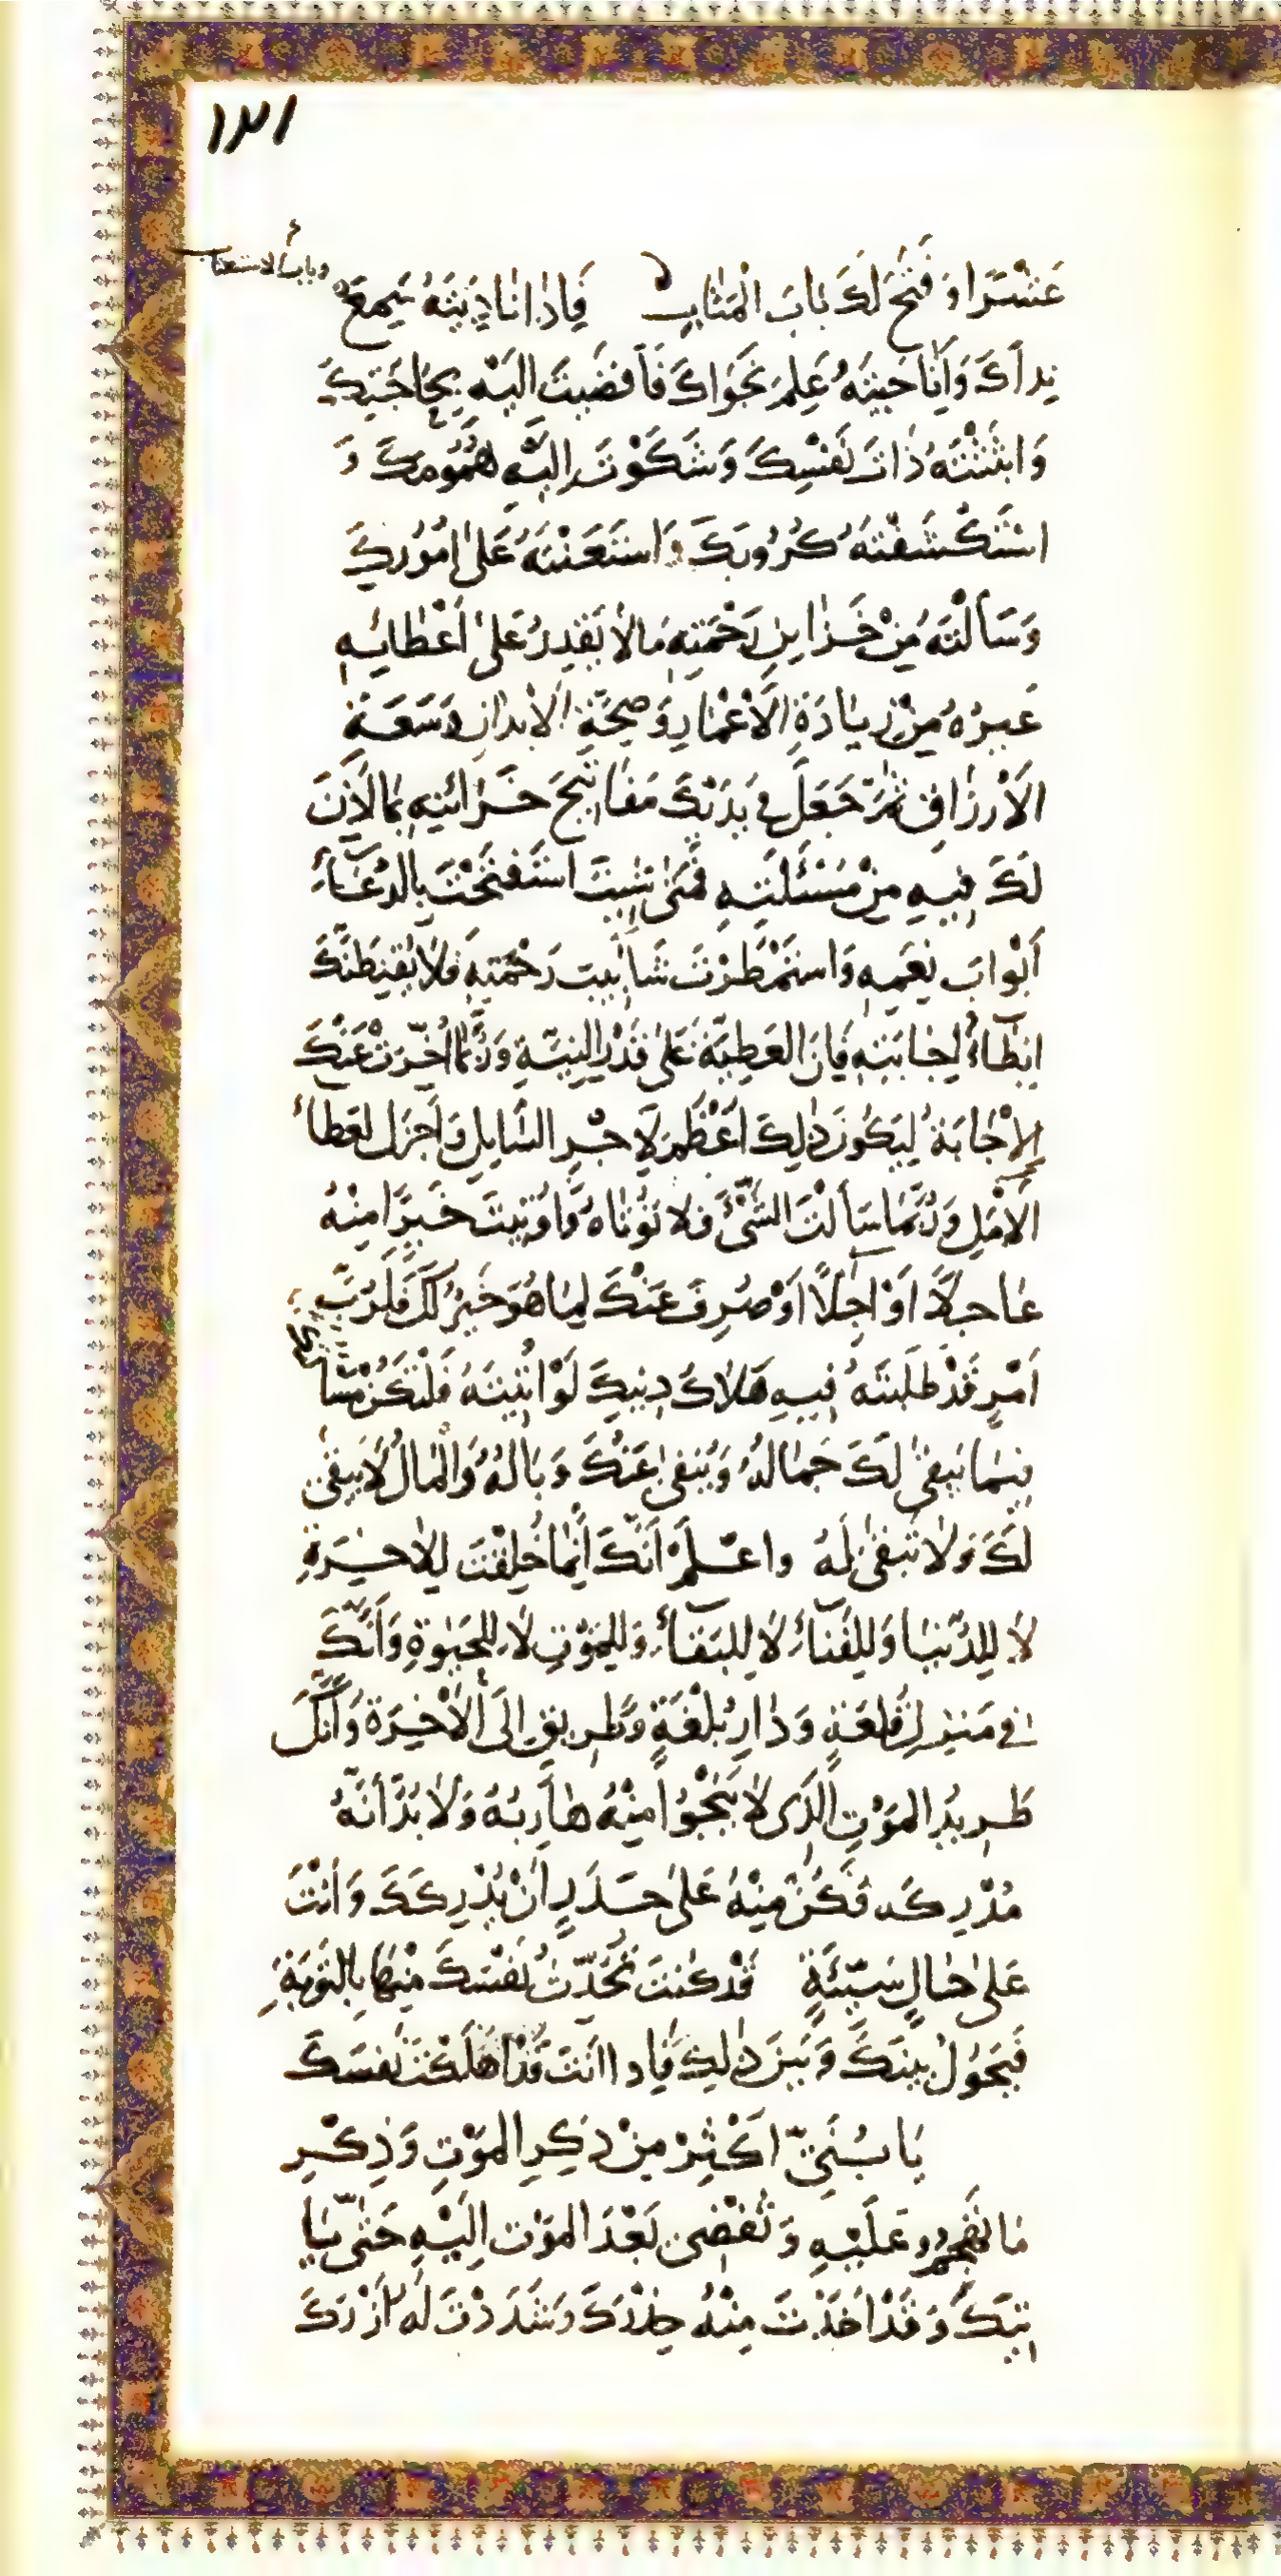 ١٣١
وباب الاستعتاب
عَشْرًا وَ فَتَحَ لَكَ بَابَ الْمَتَابِ فَاِذَا نَادَيْتَهُ سَمِعَ
نِدآكَ وَاِذَا نَاجَيْتَهُ عَلِمَ نَجْوَاكَ فَاَفْضَيْتَ اِلَيْهِ بِحَاجَتِكَ
وَابْثَثْتَهُ ذَاتَ نَفْسِكَ وَشَكَوْتَ اِلَيْهِ هُمُومَكَ وَ
اسْتَكْشَفْتَهُ كُرُوبَكَ وَاسْتَعَنْتَهُ عَلىٰ اُمُورِكَ
وَسَأَلْتَهُ مِنْ خَزَايِنِ رَحْمَتِهِ مَا لَا يَقْدِرُ عَلىٰ اَعْطَائِهِ
غَيْرُهُ مِنْ زِيَادَةِ الْاَعْمَارِ وَصِحَّةِ الْاَبْدَانِ وَسَعَةِ
الْاَرْزَاقِ ثُمَّ جَعَلَ فِي يَدَيْكَ مَفَاتِيحَ خَزَائِنِهِ بِمَا اَذِنَ
لَكَ فِيهِ مِنْ مَسْئَلَتِهِ فَمَتىٰ شِئْتَ اسْتَفْتَحْتَ بِالدُّعَآءِ
اَبْوَابَ نِعَمِهِ وَاسْتَمْطَرْتَ شَآبِيبَ رَحْمَتِهِ فَلَا يُقْنِطَنَّكَ
اِبْطَآءُ اِجَابَتِهِ فَاِنَّ الْعَطِيَّةَ عَلىٰ قَدْرِ النِّيَّةِ وَرُبَّمَا اُخِّرَتْ عَنْكَ
الْاِجَابَةُ لِيَكُونَ ذٰلِكَ اَعْظَمَ لِاَجْرِ السَّايِلِ وَاَجْزَلَ لِعَطَاءِ
الْاَمَلِ وَرُبَّمَا سَأَلْتَ الشَّيْءَ فَلَا تُؤْتَاهُ وَاُوتِيتَ خَيْرًا مِنْهُ
عَاجِلًا اَوْ اٰجِلًا اَوْ صُرِفَ عَنْكَ لِمَا هُوَ خَيْرٌ لَكَ فَلَرُبَّ
اَمْرٍ قَدْ طَلَبْتَهُ فِيهِ هَلَاكُ دِينِكَ لَوْ اُتِيتَهُ فَلْتَكُنْ مَسْأَلَتُكَ
فِيمَا يَبْقىٰ لَكَ جَمَالُهُ وَيُنْفىٰ عَنْكَ وَبَالُهُ وَالْمَالُ لَا يَبْقىٰ
لَكَ وَلَا تَبْقىٰ لَهُ وَاعْلَمْ اَنَّكَ اِنَّمَا خُلِقْتَ لِلْاٰخِرَةِ
لَا لِلدُّنْيَا وَلِلْفَنَآءِ لَا لِلْبَقَآءِ وَلِلْمَوْتِ لَا لِلْحَيٰوةِ وَاَنَّكَ
فِي مَنْزِلِ قُلْعَةٍ وَدَارِ بُلْغَةٍ وَطَرِيقٍ اِلَى الْاٰخِرَةِ وَاَنَّكَ
طَرِيدُ الْمَوْتِ الَّذِى لَا يَنْجُوا مِنْهُ هَارِبُهُ وَلَا بُدَّ اَنَّهُ
مُدْرِكَه فَكُنْ مِنْهُ عَلىٰ حَذَرٍ اَنْ يُدْرِكَكَ وَاَنْتَ
عَلىٰ حَالٍ سَيِّئَةٍ قَدْ كُنْتَ تُحَدِّثُ نَفْسَكَ مِنْهَا بِالتَّوْبَةِ
فَيَحُولُ بَيْنَكَ وَبَيْنَ ذٰلِكَ فَاِذا اَنْتَ قَدْ اَهْلَكْتَ نَفْسَكَ
يَا بُنَيَّ اَكْثِرْ مِنْ ذِكْرِ الْمَوْتِ وَذِكْرِ
مَا تَهْجُمُ عَلَيْهِ وَتُفْضِى بَعْدَ الْمَوْتِ اِلَيْهِ حَتّىٰ يَا
تِيَكَ وَقَدْ اَخَذْتَ مِنْهُ حِذْرَكَ وَشَدَدْتَ لَهُ اَزْرَكَ